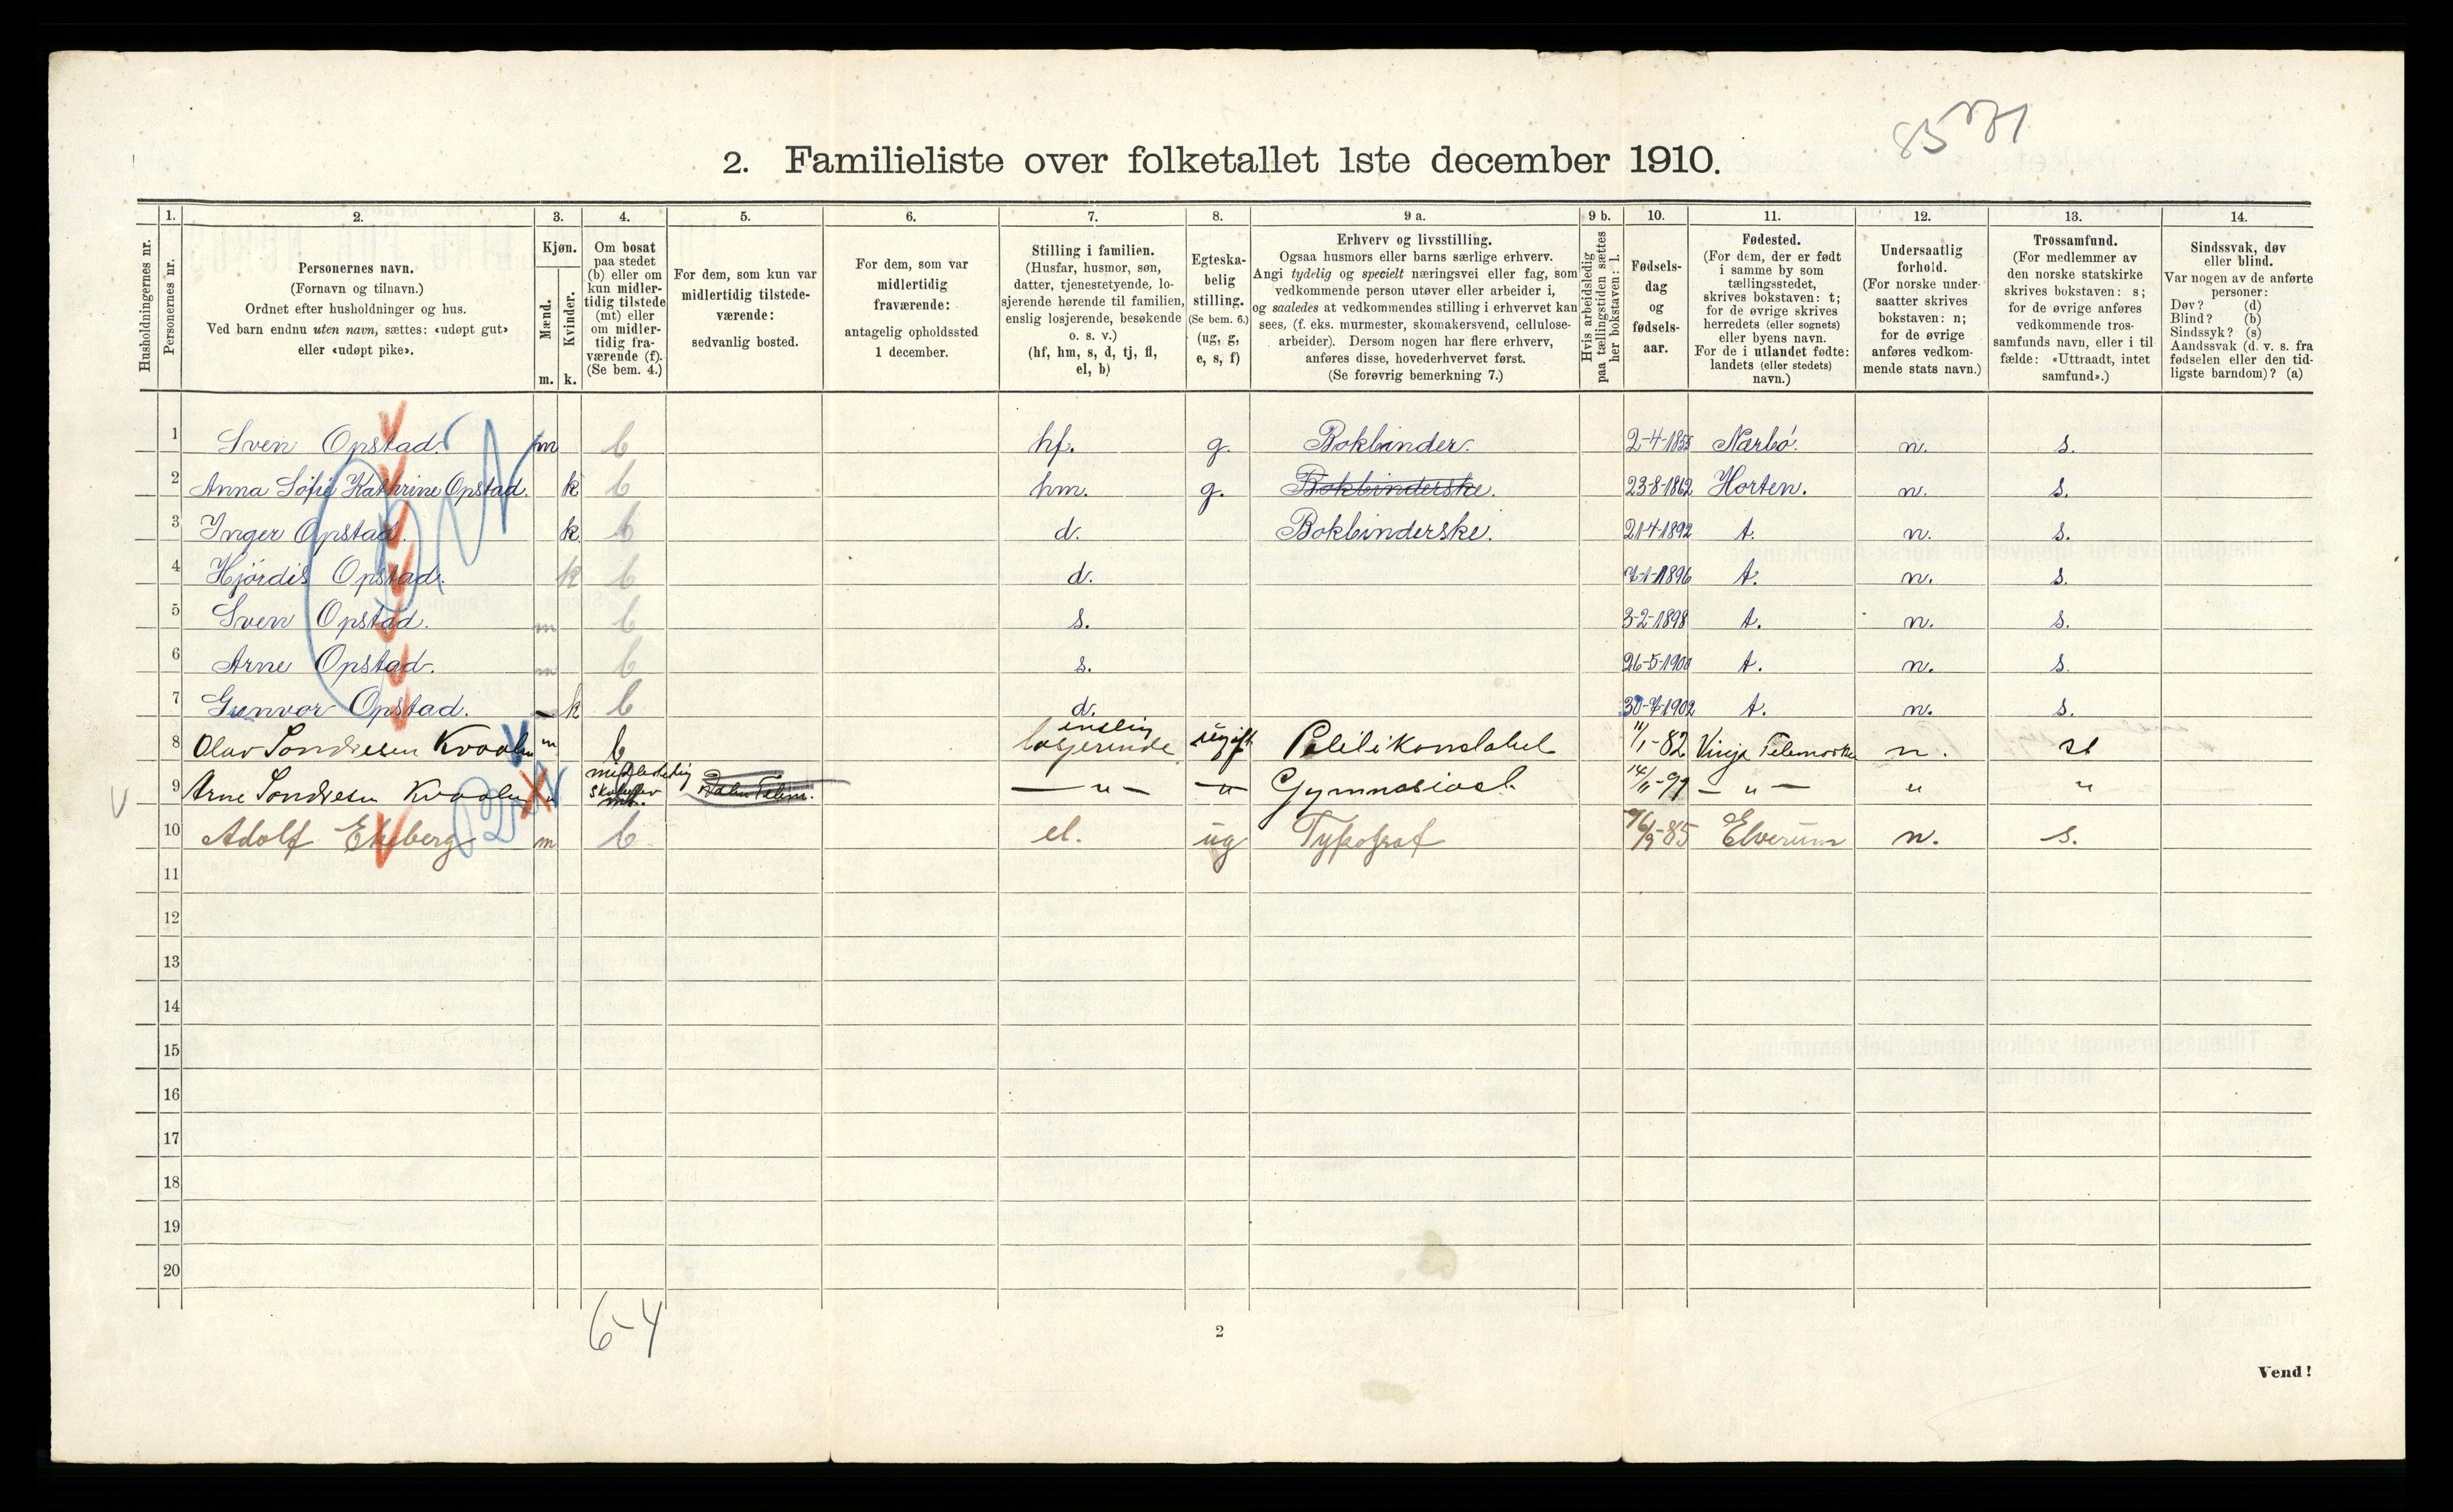 8571
2. Familieliste over folketallet 1ste december 1910.
Husholdningernes nr.
1. Personernes nr.
2. Personernes navn. (Fornavn og tilnavn.) Ordnet efter husholdninger og hus. Ved barn endnu uten navn, sættes: «udøpt gut» eller «udøpt pike».
3. Kjøn. Mænd. m. Kvinder. k.
4. Om bosat paa stedet (b) eller om kun midlertidig tilstede (mt) eller om midlertidig fraværende (f). (Se bem. 4.)
5. For dem, som kun var midlertidig tilstedeværende: sedvanlig bosted.
6. For dem, som var midlertidig fraværende: antagelig opholdssted 1 december.
7. Stilling i familien. (Husfar, husmor, søn, datter, tjenestetyende, losjerende hørende til familien, enslig losjerende, besøkende o. s. v.) (hf, hm, s, d, tj, fl, el, b)
8. Egteskabelig stilling. (Se bem. 6.) (ug, g, e, s, f)
9 a. Erhverv og livsstilling. Ogsaa husmors eller barns særlige erhverv. Angi tydelig og specielt næringsvei eller fag, som vedkommende person utøver eller arbeider i, og saaledes at vedkommendes stilling i erhvervet kan sees, (f. eks. murmester, skomakersvend, cellulosearbeider). Dersom nogen har flere erhverv, anføres disse, hovederhvervet først. (Se forøvrig bemerkning 7.)
9 b. Hvis arbeidsledig paa tællingstiden sættes her bokstaven: l.
10. Fødselsdag og fødselsaar.
11. Fødested. (For dem, der er født i samme by som tællingsstedet, skrives bokstaven: t; for de øvrige skrives herredets (eller sognets) eller byens navn. For de i utlandet fødte: landets (eller stedets) navn.)
12. Undersaatlig forhold. (For norske undersaatter skrives bokstaven: n; for de øvrige anføres vedkommende stats navn.)
13. Trossamfund. (For medlemmer av den norske statskirke skrives bokstaven: s; for de øvrige anføres vedkommende trossamfunds navn, eller i tilfælde: «Uttraadt, intet samfund».)
14. Sindssvak, døv eller blind. Var nogen av de anførte personer: Døv? (d) Blind? (b) Sindssyk? (s) Aandssvak (d. v. s. fra fødselen eller den tidligste barndom)? (a)
1 Sven Opstad. m b hf. g. Bokbinder. 2-4-1855 Nærbø. n. s.
2 Anna Sofie Kathrine Opstad. k b hm. g. Bokbinderske. 23-8-1862 Horten. n. s.
3 Inger Opstad. k b d. Bokbinderske. 21-4-1892 t. n. s.
4 Hjördis Opstad. k b d. 7-1-1896 t. n. s.
5 Sven Opstad. m b s. 3-2-1898 t. n. s.
6 Arne Opstad. m b s. 26-5-1900 t. n. s.
7 Gunvor Opstad. k b d. 30-7-1902 t. n. s.
8 Olav Sondresen Kvaalen m b enslig losjerende ugift Politikonstabel 11/1-82 Vinje Telemarken n. st
9 Arne Sondresen Kvaalen m midlertidig mt. — „ — — „ Gymnasiast 14/11-91 — „ — „ „
10 Adolf Ekeberg m b el. ug Typograf 26/9-85 Elverum n. s.
11
12
13
14
15
16
17
18
19
20
6-4
2
Vend!